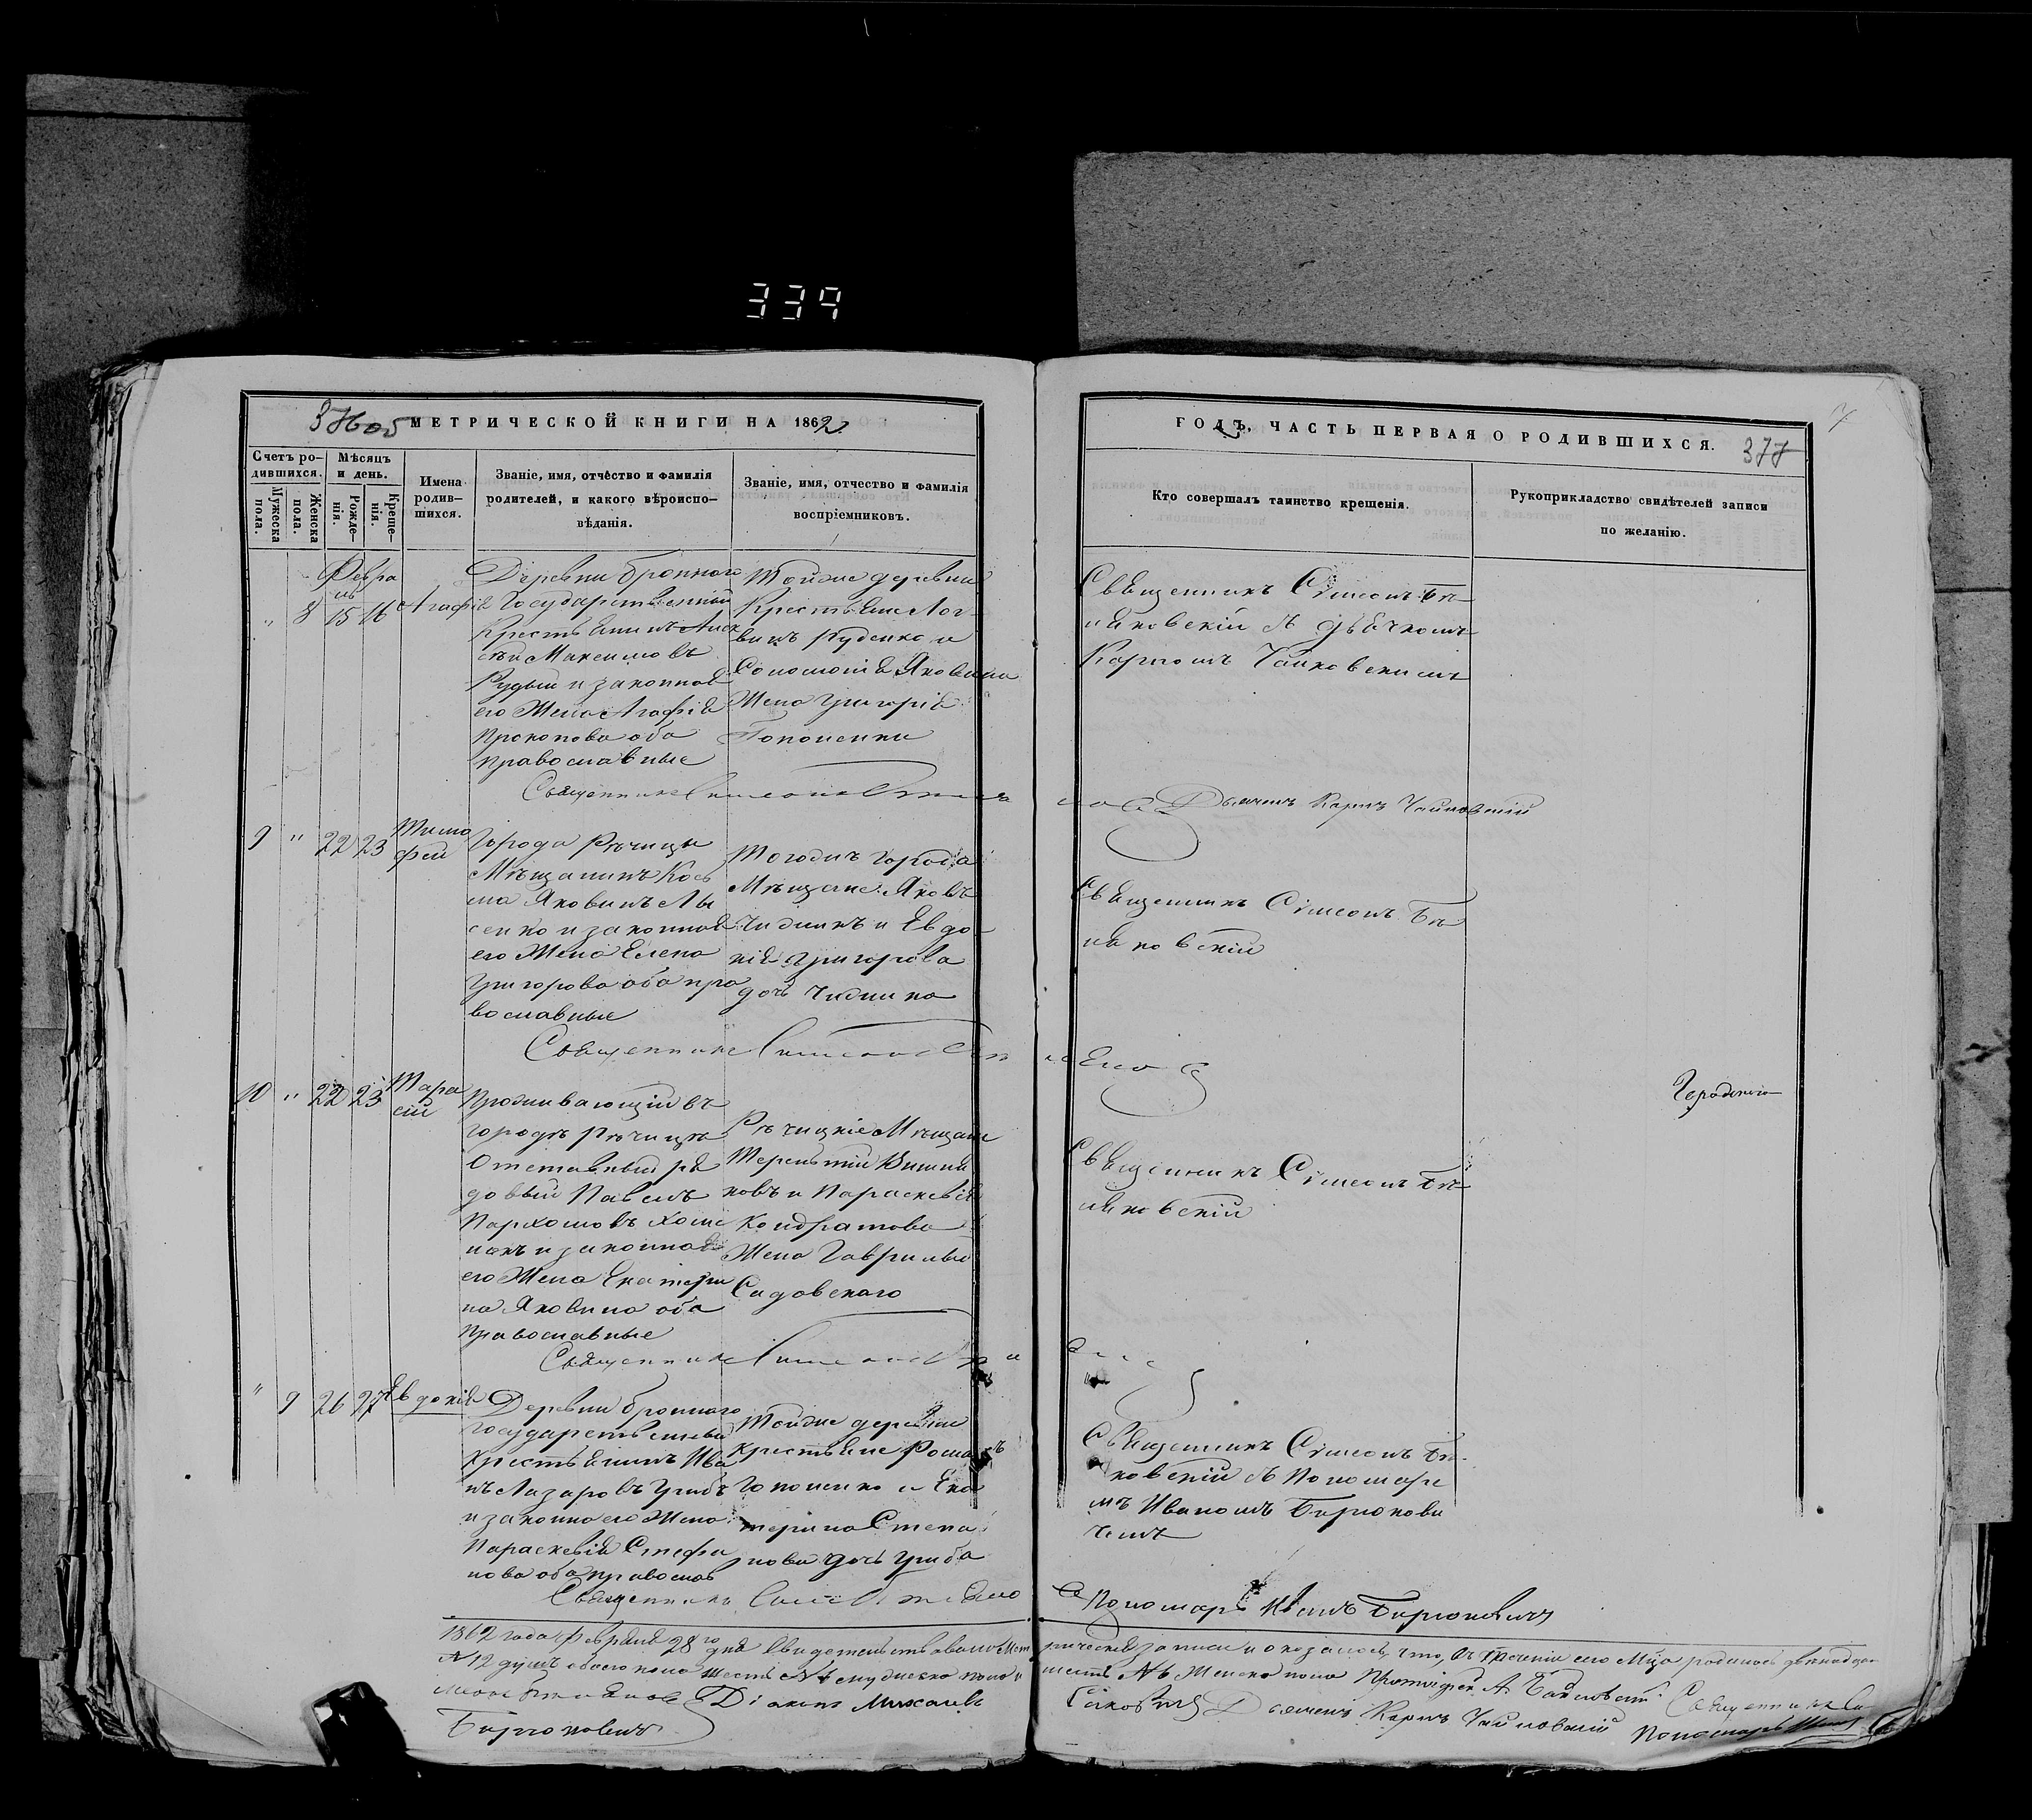 339
376 об МЕТРИЧЕСКОЙ КНИГИ НА 1862
ГОДЪ, ЧАСТЬ ПЕРВАЯ О РОДИВШИХСЯ.
377
Счетъ ро-
дившихся.
Мужеска пола.
Женска пола.
Мѣсяцъ
и день.
Рожде-
нія.
Креще-
нія.
Имена
родив-
шихся.
Званіе, имя, отчество и фамилія
родителей, и какого вѣроиспо-
вѣданія.
Званіе, имя, отчество и фамилія
воспріемниковъ.
Кто совершалъ таинство крещенія.
Рукоприкладство свидѣтелей записи
по желанію.
Февра
ль
" 8 15 16 Агафія
Деревни Броннаго
Государственный
Крестьянинъ Алек
сѣй Максимовъ
Рудый и законная
его Жена Агафія
Прокопова оба
православные
Тойже деревни
Крестьяне Лог
винъ Руденко и
Соломонія Яковлева
Жена Григорія
Гопоненки
Священникъ Симеонъ
Священникъ Сѵмеонъ Бѣ
ляновскій съ дьячкомъ
Карпомъ Чайковскимъ
Дьячекъ Карпъ Чайковскій
9 " 22 23 Тимо
фей
Города Рѣчицы
Мѣщанинъ Кось
ма Яковинъ Лы
сенко и законная
его Жена Елена
Григорова оба пра
вославные
Тогожъ города
Мѣщане Яковъ
Чижикъ и Евдо
кія Григорова
дочь Чижика
Священникъ Симеонъ
Священникъ Сѵмеонъ Бѣ
ляновскій
10 " 22 23 Тара
сій
Проживающій въ
городѣ Рѣчицѣ
Отставный ря
довый Павелъ
Пархомовъ Хоме
нокъ и законная
его Жена Екатери
на Яковина оба
православные
Рѣчицкіе Мѣщане
Терентій Вишня
ковъ и Параскевія
Кондратова
Жена Гаврилы
Садовскаго
Священникъ Симеонъ
Священникъ Сѵмеонъ Бѣ
ляновскій
" 9 26 27 Евдокія
Деревни Броннаго
Государственный
Крестьянинъ Ива
нъ Лазаровъ Грибъ
и законная его Жена
Параскевія Стефа
нова оба православ
Тойже деревни
Крестьяне Романъ
Гопоненко и Ека
терина Степа
нова дочь Гриба
Священникъ
Священникъ Сѵмеонъ Бѣ
новскій съ Пономаре
мъ Иваномъ Бирюкови
чемъ
Пономарь Иванъ Бирюковичъ
1862 года Февраля 28го дня Свидетельствовано Мет рическія записи и оказалось, что, въ теченіи сего Мца родилось двенадцать
№12 душъ обоего пола шесть №6 мужеска пола и шесть №6 женска пола Протоіерей А.
Діаконъ Михаилъ
Бирюковичъ
Дьячекъ Карпъ Чайковскій Пономарь Иванъ